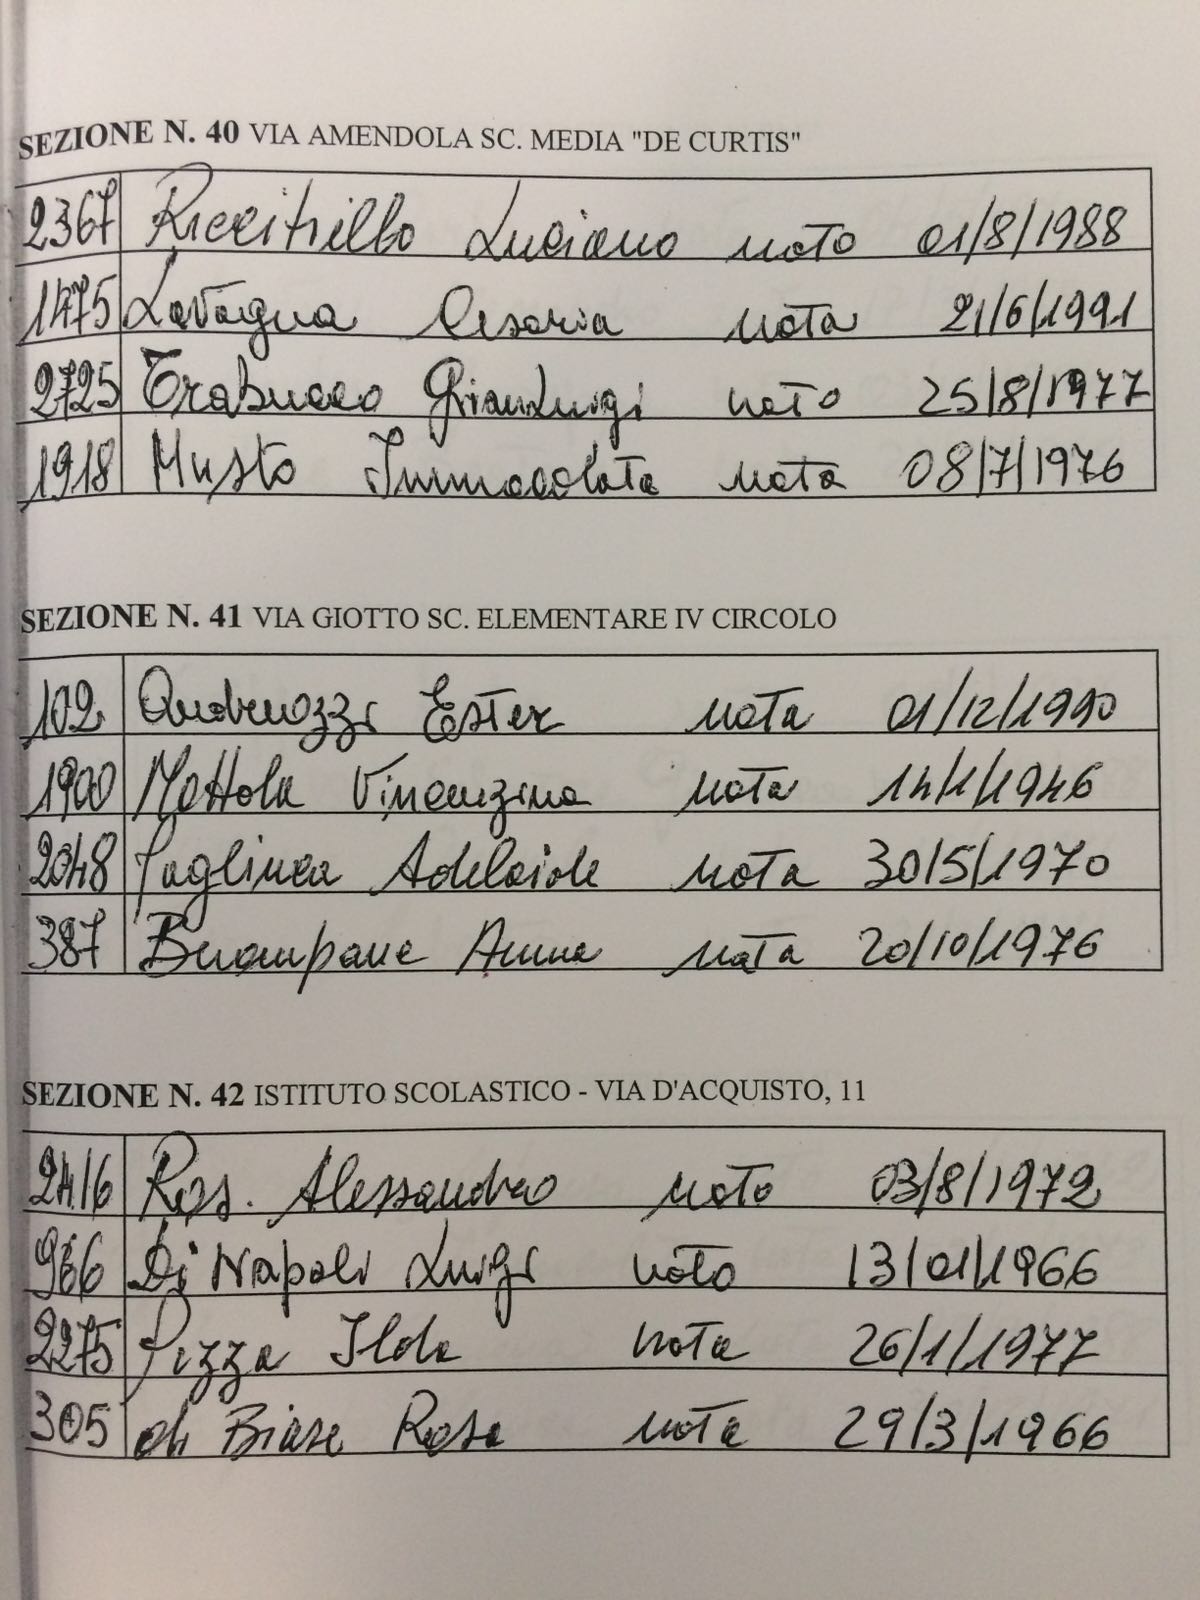 SEZIONE N. 40 VIA AMENDOLA SC. MEDIA "DE CURTIS"
2367 Riccitiello Luciano nato 01/8/1988
1475 Lavagna Cesaria nata 21/6/1991
2725 Trabucco Gianluigi nato 25/8/1977
1918 Musto Immacolata nata 08/7/1976
SEZIONE N. 41 VIA GIOTTO SC. ELEMENTARE IV CIRCOLO
102 Andreozzi Ester nata 01/12/1990
1900 Mottola Vincenzina nata 14/1/1946
2048 Puglinca Adelaide nata 30/5/1970
387 Buompane Anna nata 20/10/1976
SEZIONE N. 42 ISTITUTO SCOLASTICO - VIA D'ACQUISTO, 11
2416 Alessandro nato 03/8/1972
966 Di Napoli Luigi nato 13/01/1966
2275 Pezza Ilda nata 26/1/1977
305 di Biase Rosa nata 29/3/1966